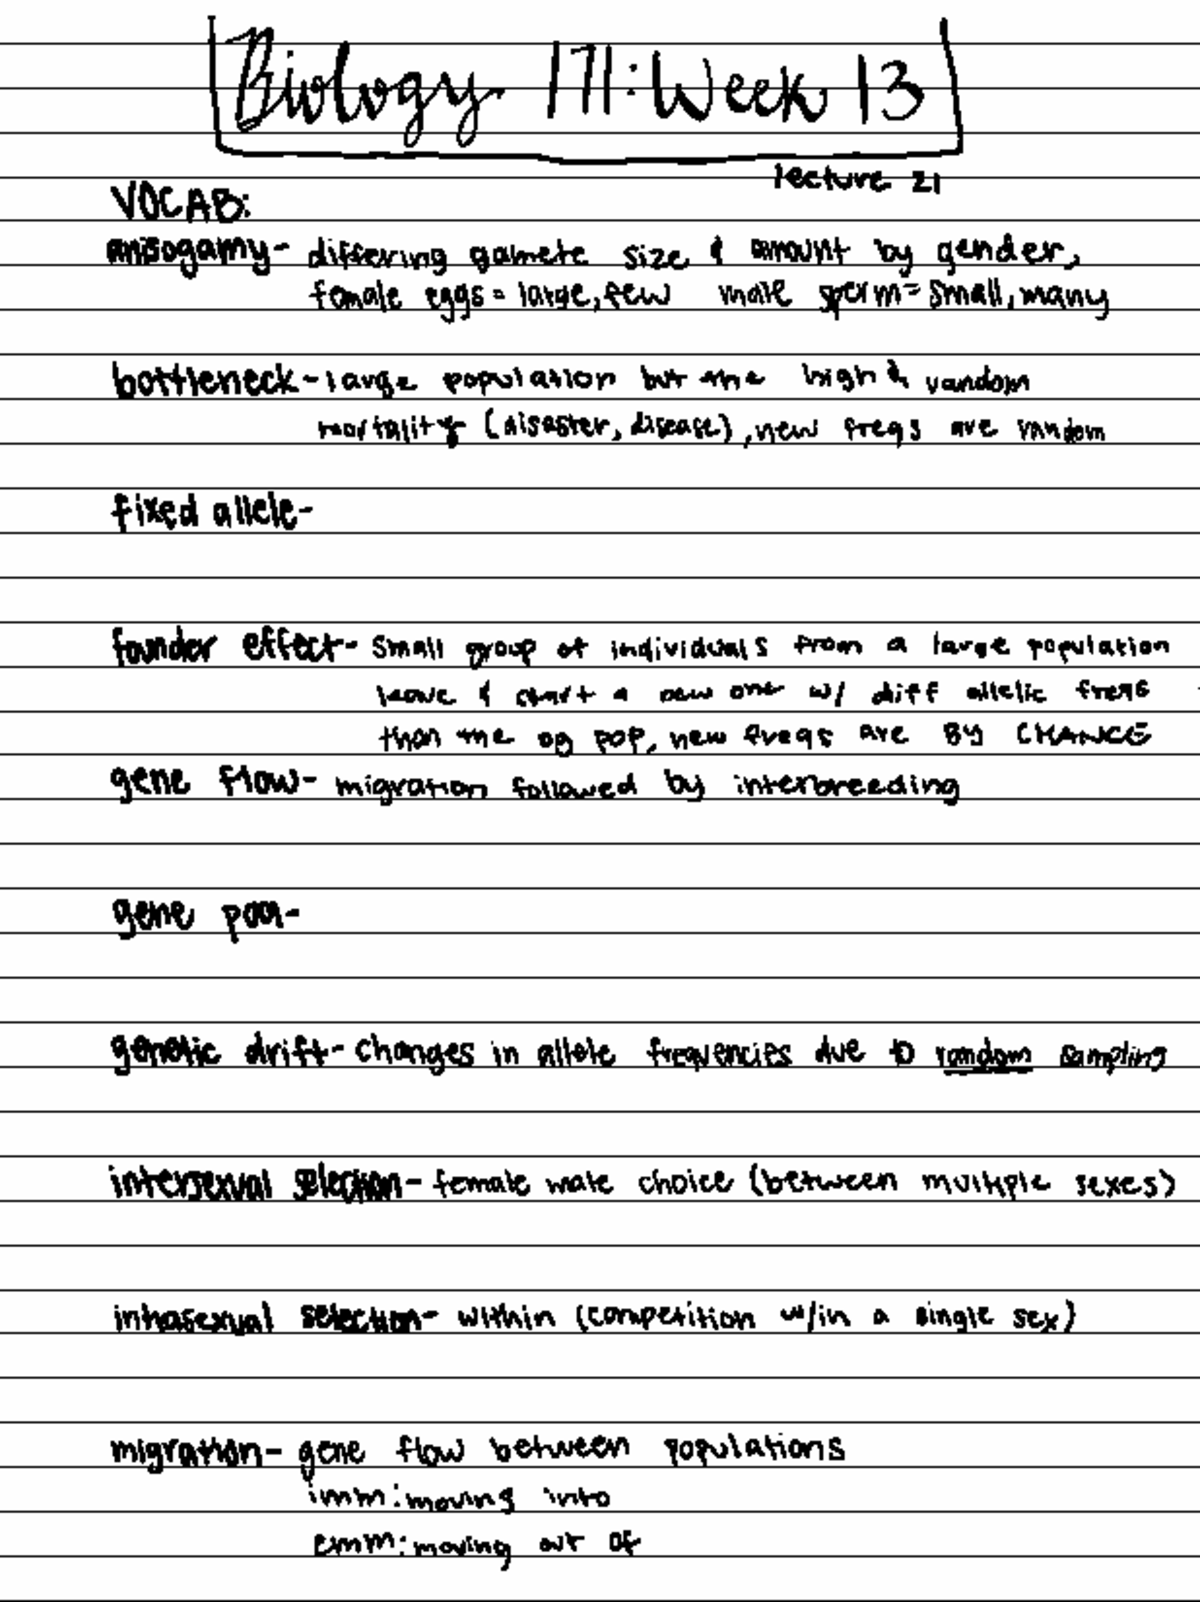 Biology 171: Week 13
lecture 21
VOCAB:
anisogamy- differing gamete size & amount by gender,
female eggs = large, few male sperm = small, many
bottleneck- large population but the high & random
mortality (disaster, disease), new freqs are random
fixed allele-
founder effect- small group of individuals from a large population
leave & start a new one w/ diff allelic freqs
than the og pop, new freqs are BY CHANCE
gene flow- migration followed by interbreeding
gene pool-
genetic drift- changes in allele frequencies due to random sampling
intersexual selection- female mate choice (between multiple sexes)
intrasexual selection- within (competition w/in a single sex)
migration- gene flow between populations
imm: moving into
emm: moving out of